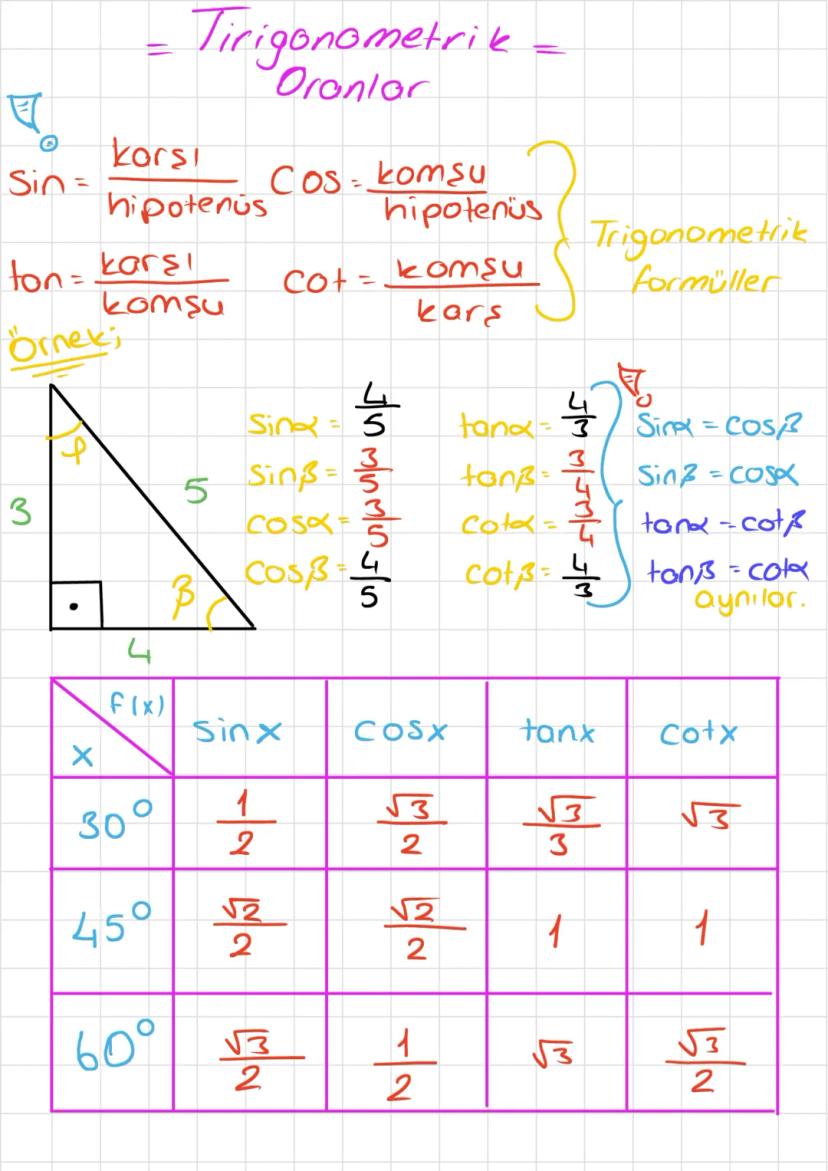 = Tirigonometrik =
Oranlar
sin = karşı / hipotenüs   Cos = komşu / hipotenüs
tan = karşı / komşu   cot = komşu / karş
Trigonometrik
formüller
Örnek;
3
5
4
β
sinα = 4/5
sinβ = 3/5
cosα = 3/5
cosβ = 4/5
tanα = 4/3
tanβ = 3/4
cotα = 3/4
cotβ = 4/3
Sinα = cosβ
sinβ = cosα
tanα = cotβ
tanβ = cotα
aynılar.
x   f(x)   sinx   cosx   tanx   cotx
30°   1/2   √3/2   √3/3   √3
45°   √2/2   √2/2   1   1
60°   √3/2   1/2   √3   √3/2